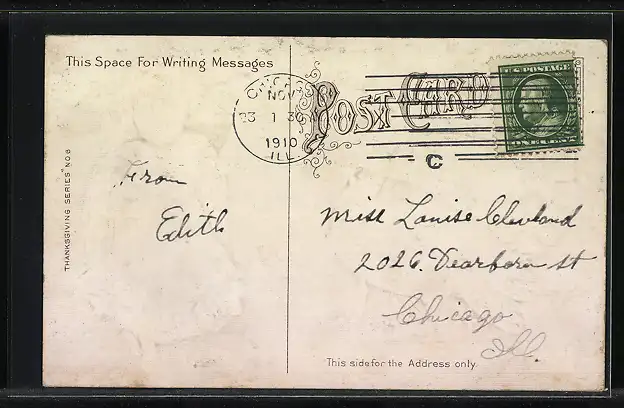 This Space For Writing Messages
CHICAGO
NOV
23 1 30
1910
ILL.
POST CARD
U.S. POSTAGE
ONE CENT
C
THANKSGIVING SERIES "NO 8
From
Edith
Miss Louise Cleveland
2026. Dearborn st
Chicago
Ill.
This side for the Address only.